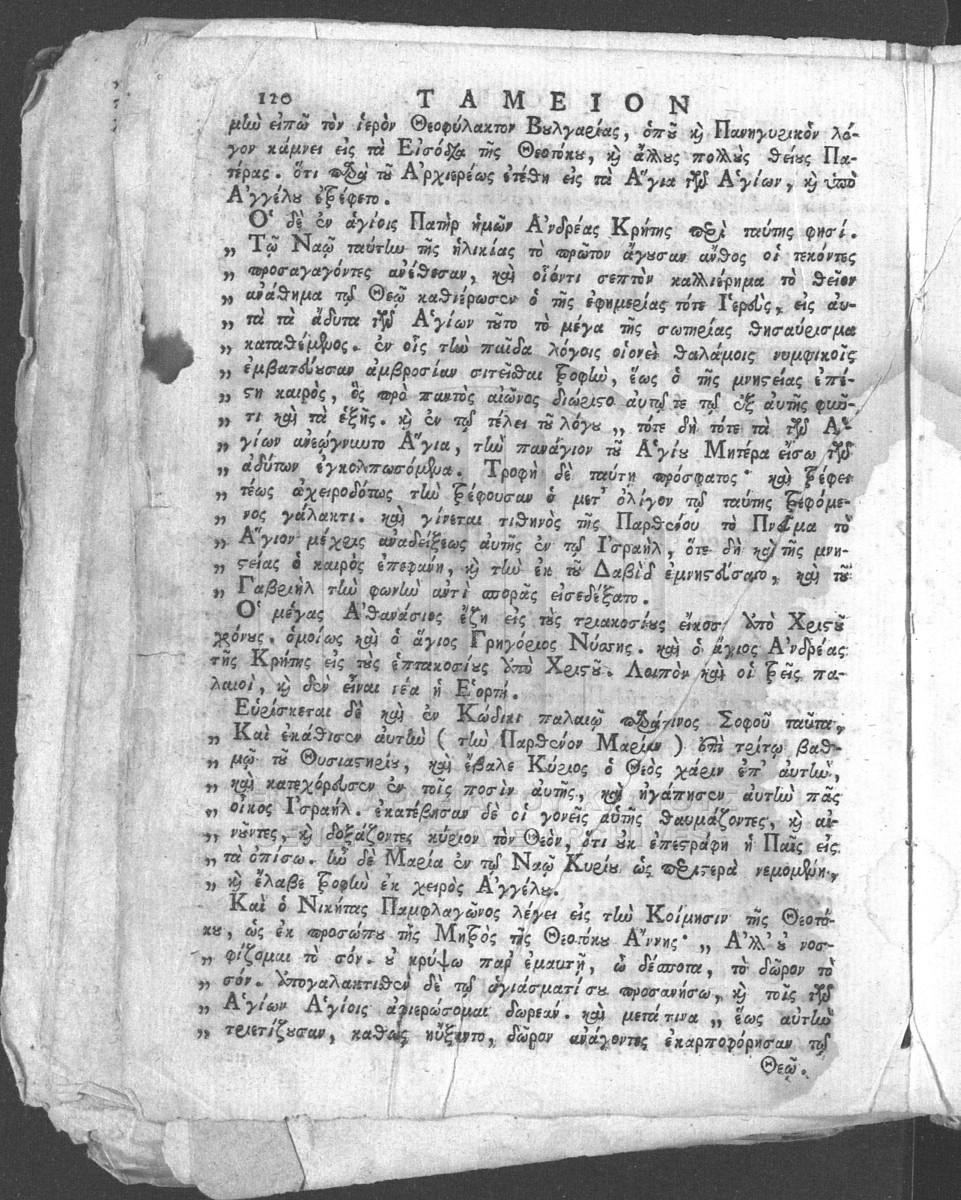 120 ΤΑΜΕΙΟΝ
μὴν εἰπῶ τὸν ἱερὸν Θεοφύλακτον Βουλγαρίας, ὁποῦ κὴ Πανηγυρικὸν λό-
γον κάμνει εἰς τὰ Εἰσόδια τῆς Θεοτόκου, κὴ ἄλλους πολλοὺς θείους Πα-
τέρας. ὅτι παρὰ τοῦ Ἀρχιερέως ἐτέθη εἰς τὰ Ἅγια τῶν Ἁγίων, κὴ ὑπὸ
Ἀγγέλου ἐτρέφετο.
Ὁ δὲ ἐν ἁγίοις Πατὴρ ἡμῶν Ἀνδρέας Κρήτης περὶ ταύτης φησί.
„ Τῷ Ναῷ ταύτην τῆς ἡλικίας τὸ πρῶτον ἄγουσαν ἄνθος οἱ τεκόντες
„ προσαγαγόντες ἀνέθεσαν, καὶ οἱόντι σεπτὸν καλλιέρημα τὸ θεῖον
„ ἀνάθημα τῷ Θεῷ καθιέρωσεν ὁ τῆς ἐφημερίας τότε Ἱερεὺς, εἰς αὐ-
„ τὰ τὰ ἄδυτα τῶν Ἁγίων τοῦτο τὸ μέγα τῆς σωτηρίας θησαύρισμα
„ καταθέμενος. ἐν οἷς τὴν παῖδα λόγοις οἱονεὶ θαλάμοις νυμφικοῖς
„ ἐμβατεύουσαν ἀμβροσίαν σιτεῖσθαι τροφὴν, ἕως ὁ τῆς μνηστείας ἐπέ-
„ στη καιρὸς, ὃς πρὸ παντὸς αἰῶνος διώριστο αὐτῷ τε τῷ ἐξ αὐτῆς φυέν-
„ τι καὶ τὰ ἑξῆς. κὴ ἐν τῷ τέλει τοῦ λόγου „ τότε δὴ τότε τὰ τῶν Ἁ-
„ γίων ἀνεῴγνυτο Ἅγια, τὴν πανάγιον τοῦ Ἁγίου Μητέρα εἴσω τῶν
„ ἀδύτων ἐγκολπωσόμενα. Τροφὴ δὲ ταύτῃ πρόσφατος· καὶ τρέφει
„ τέως ἀχειροδότως τὴν τρέφουσαν ὁ μετ' ὀλίγον τῷ ταύτης τρεφόμε-
„ νος γάλακτι. καὶ γίνεται τιθηνὸς τῆς Παρθένου τὸ Πνεῦμα τὸ
„ Ἅγιον μέχρις ἀναδείξεως αὐτῆς ἐν τῷ Ἰσραὴλ, ὅτε δὴ καὶ τῆς μνη-
„ στείας ὁ καιρὸς ἐπεφάνη, κὴ τὴν ἐκ τοῦ Δαβὶδ ἐμνηστεύσατο, καὶ τοῦ
„ Γαβριὴλ τὴν φωνὴν ἀντὶ σπορᾶς εἰσεδέξατο.
Ὁ μέγας Ἀθανάσιος ἔζη εἰς τοὺς τριακοσίους εἴκοσι ἀπὸ Χριστοῦ
χρόνους. ὁμοίως καὶ ὁ ἅγιος Γρηγόριος Νύσσης. καὶ ὁ ἅγιος Ἀνδρέας
τῆς Κρήτης εἰς τοὺς ἑπτακοσίους ἀπὸ Χριστοῦ. Λοιπὸν καὶ οἱ τρεῖς πα-
λαιοὶ, κὴ δὲν εἶναι νέα ἡ Ἑορτή.
Εὑρίσκεται δὲ καὶ ἐν Κώδικι παλαιῷ παρά τινος Σοφοῦ ταῦτα,
„ Καὶ ἐκάθισεν αὐτὴν ( τὴν Παρθένον Μαρίαν ) ἐπὶ τρίτῳ βαθ-
„ μῷ τοῦ Θυσιαστηρίου, καὶ ἔβαλε Κύριος ὁ Θεὸς χάριν ἐπ' αὐτὴν,
„ καὶ κατεχόρευσεν ἐν τοῖς ποσὶν αὐτῆς, καὶ ἠγάπησεν αὐτὴν πᾶς
„ οἶκος Ἰσραήλ. ἐκατέβησαν δὲ οἱ γονεῖς αὐτῆς θαυμάζοντες, κὴ αἰ-
„ νοῦντες, κὴ δοξάζοντες κύριον τὸν Θεὸν, ὅτι οὐκ ἐπεστράφη ἡ Παῖς εἰς
„ τὰ ὀπίσω. ἦν δὲ Μαρία ἐν τῷ Ναῷ Κυρίου ὡς περιστερὰ νεμομένη,
„ κὴ ἔλαβε τροφὴν ἐκ χειρὸς Ἀγγέλου.
Καὶ ὁ Νικήτας Παμφλαγῶνος λέγει εἰς τὴν Κοίμησιν τῆς Θεοτό-
κου, ὡς ἐκ προσώπου τῆς Μητρὸς τῆς Θεοτόκου Ἄννης· „ Ἀλλ' οὐ νοσ-
„ φίζομαι τὸ σόν. οὐ κρύψω παρ' ἐμαυτῇ, ὦ δέσποτα, τὸ δῶρον τὸ
„ σόν. ἀπογαλακτισθὲν δὲ τῷ ἁγιάσματί σου προσανήσω, κὴ τοῖς τῶν
„ Ἁγίων Ἁγίοις ἀφιερώσομαι δωρεάν. καὶ μετά τινα „ ἕως αὐτὴν
„ τριετίζουσαν, καθὼς ηὔξαντο, δῶρον ἀνάγοντες ἐκαρποφόρησαν τῷ
Θεῷ.